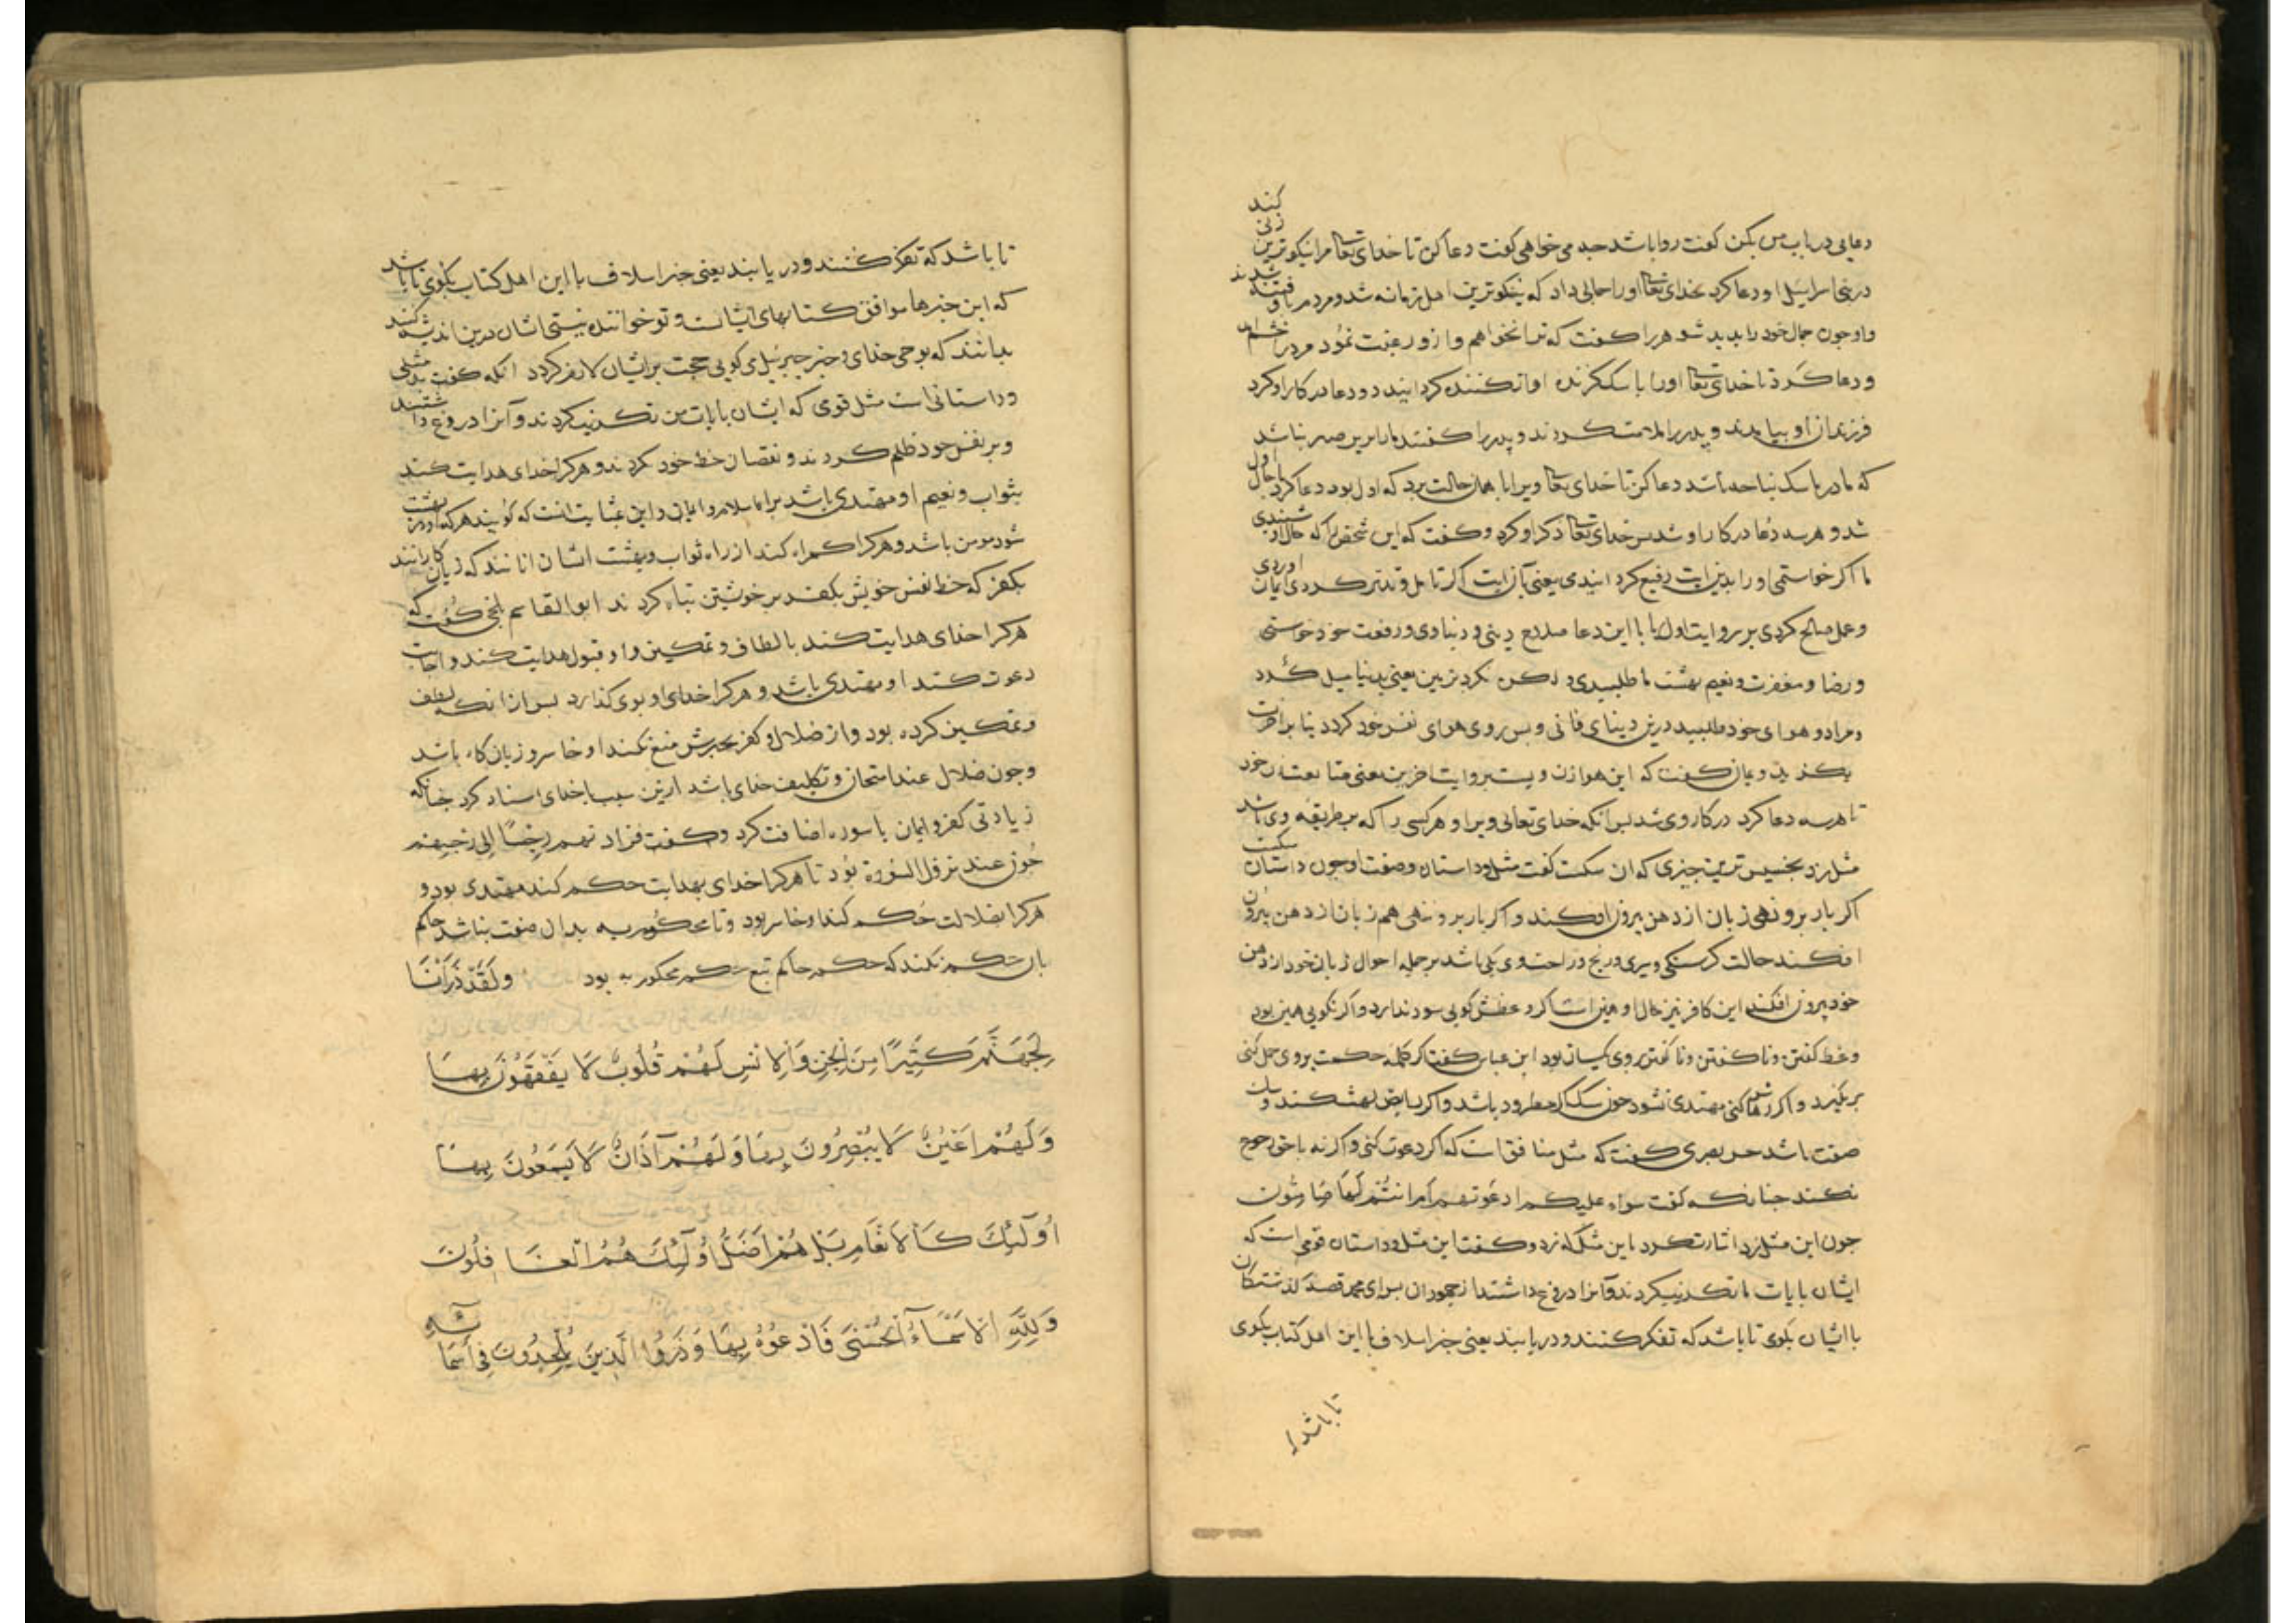 دعایی در باب من بکن کفت روا باشد جه می خواهی کفت دعا کن تا خدای تعا مرا نیکوترین زنی کند
در بنی اسرایىل او دعا کرد خدای تعا او را جمالی داد که نیکوترین اهل زمانه شد و مردم باو فتنه شدند
واو جون جمال خود را بدید شوهر را کفت که ترا نخواهم واز و رغبت نمود مرد در خشم امد
و دعا کرد تا خدای تعا او را با سکی کزنده اواز کننده کردانید دو دعا در کار او کرد
فرزندان او بیامدند و پدر را ملامت کردند و پدر را کفتند ما را برین صبر نباشد
که مادر ما سک نباحه باشد دعا کن تا خدای تعا ویرا با همان حالت برد که اول بود دعا کرد با حال اول
شد و هر سه دعا در کار او شد بس خدای تعا ذکر او کرد و کفت که این شخص را که حال او شنیدی
ما اکر خواستمی او را بدین ایت رفیع کردانیدمی یعنی باین ایت اکر تامل و تدبر کردی ایمان اوردی
و عمل صالح کردی بر روایت اول یا با این دعا مدارج دینی و دنیاوی و رفعت خود خواستی
و رضا و مغفرت و نعیم بهشت ما طلبیدی و لکن نکرد بزمین یعنی بدنیا میل کرد
و مراد و هوای خود طلبید درین دنیای فانی و بس روی هوای نفس خود کرد دنیا بر اخرت
بکزید و یمان کفت که این هوا زن ویست بر روایت اخرین یعنی متابعت زن خود
تا هر سه دعا کرد در کار وی شد بس انکه خدای تعالی ویرا و هر کسی را که بر طریقه وی باشد
مثل زد بخسیس ترین جیزی که ان سکست کفت مثل و داستان و صفت او جون داستان سکست
اکر بار برو نهی زبان از دهن بیرون افکند و اکر بار برو ننهی هم زبان از دهن بیرون
افکند حالت کرسنکی و سیری و رنج و راحت وی یکی باشد بر جمله احوال زبان خود از دهن
خود بیرون افکند این کافر نیز حال او همین است اکر وعظش کویی سود ندارد و اکر نکویی همین بود
وعظ کفتن و نا کفتن بر وی یکسان بود ابن عباس کفت اکر کلمه حکمت بر وی حمل کنی
بر نکیرد و اکر رهاش کنی مهتدی نشود جون سک اکر مطرود باشد و اکر رابض لهث کند و یک
صفت باشد حسن بصری کفت که مثل منافق است که اکر دعوت کنی و اکر نه با حق رجوع
نکند جنانکه کفت سواء علیکم ادعوتموهم ام انتم صامتون
جون این مثل زد اشارت کرد باین مثل که زد و کفت این مثل و داستان قومی است که
ایشان بایات ما تکذیب کردند و انرا دروغ داشتند از جهودان برای محمد قصه کذشتکان
با ایشان بکوی تا باشد که تفکر کنند و دریابند یعنی خبر اسلاف با این اهل کتاب بکوی
تا باشد
تا باشد که تفکر کنند و دریابند یعنی خبر اسلاف با این اهل کتاب بکوی تا باشد
که این خبرها موافق کتابهای ایشانست و تو خواننده نیستی تا ایشان درین اندیشه کنند
بدانند که بوحی خدای و خبر جبرئیل می کویی حجت بر ایشان لازم کردد انکه کفت بد مثلی
و داستانی است مثل قومی که ایشان بایات من تکذیب کردند و آنرا دروغ داشتند
و بر نفس خود ظلم کردند و نقصان حظ خود کردند و هر کرا خدای هدایت کند
بثواب و نعیم او مهتدی باشد براه اسلام و ایمان و این بمثابت انست که کویند هر که او در بهشت
شود مومن باشد و هر کرا کمراه کند از راه ثواب و بهشت ایشان انانند که زیان کارانند
بکفر که حظ نفس خویش بکفر بر خویشتن تباه کردند ابو القاسم بلخی کفت که
هر کرا خدای هدایت کند بالطاف و تمکین و او قبول هدایت کند و اجابت
دعوت کند او مهتدی باشد و هر کرا خدای او بوی کذارد بس از انک لطف
و تمکین کرده بود و از ضلال و کفر بجبرش منع نکند او خاسر و زیان کار باشد
و جون ضلال عند امتحان و تکلیف خدای باشد ازین سبب با خدای اسناد کرد جنانکه
زیادتی کفر و ایمان با سوره اضافت کرد و کفت فزادتهم رجسا الی رجسهم
جون عند نزول السورة بود تا هر کرا خدای بهدایت حکم کند مهتدی بود و
هر کرا بضلالت حکم کند او خاسر بود و تا محکوم به بدان صفت نباشد حاکم
بان حکم نکند که حکم حاکم تبع حکم محکوم به بود ولقد ذرأنا
لجهنم کثیرا من الجن والانس لهم قلوب لا یفقهون بها
ولهم اعین لا یبصرون بها ولهم آذان لا یسمعون بها
اولئك كالانعام بل هم اضل اولئك هم الغافلون
ولله الاسماء الحسنى فادعوه بها وذروا الذین یلحدون فی اسمائه